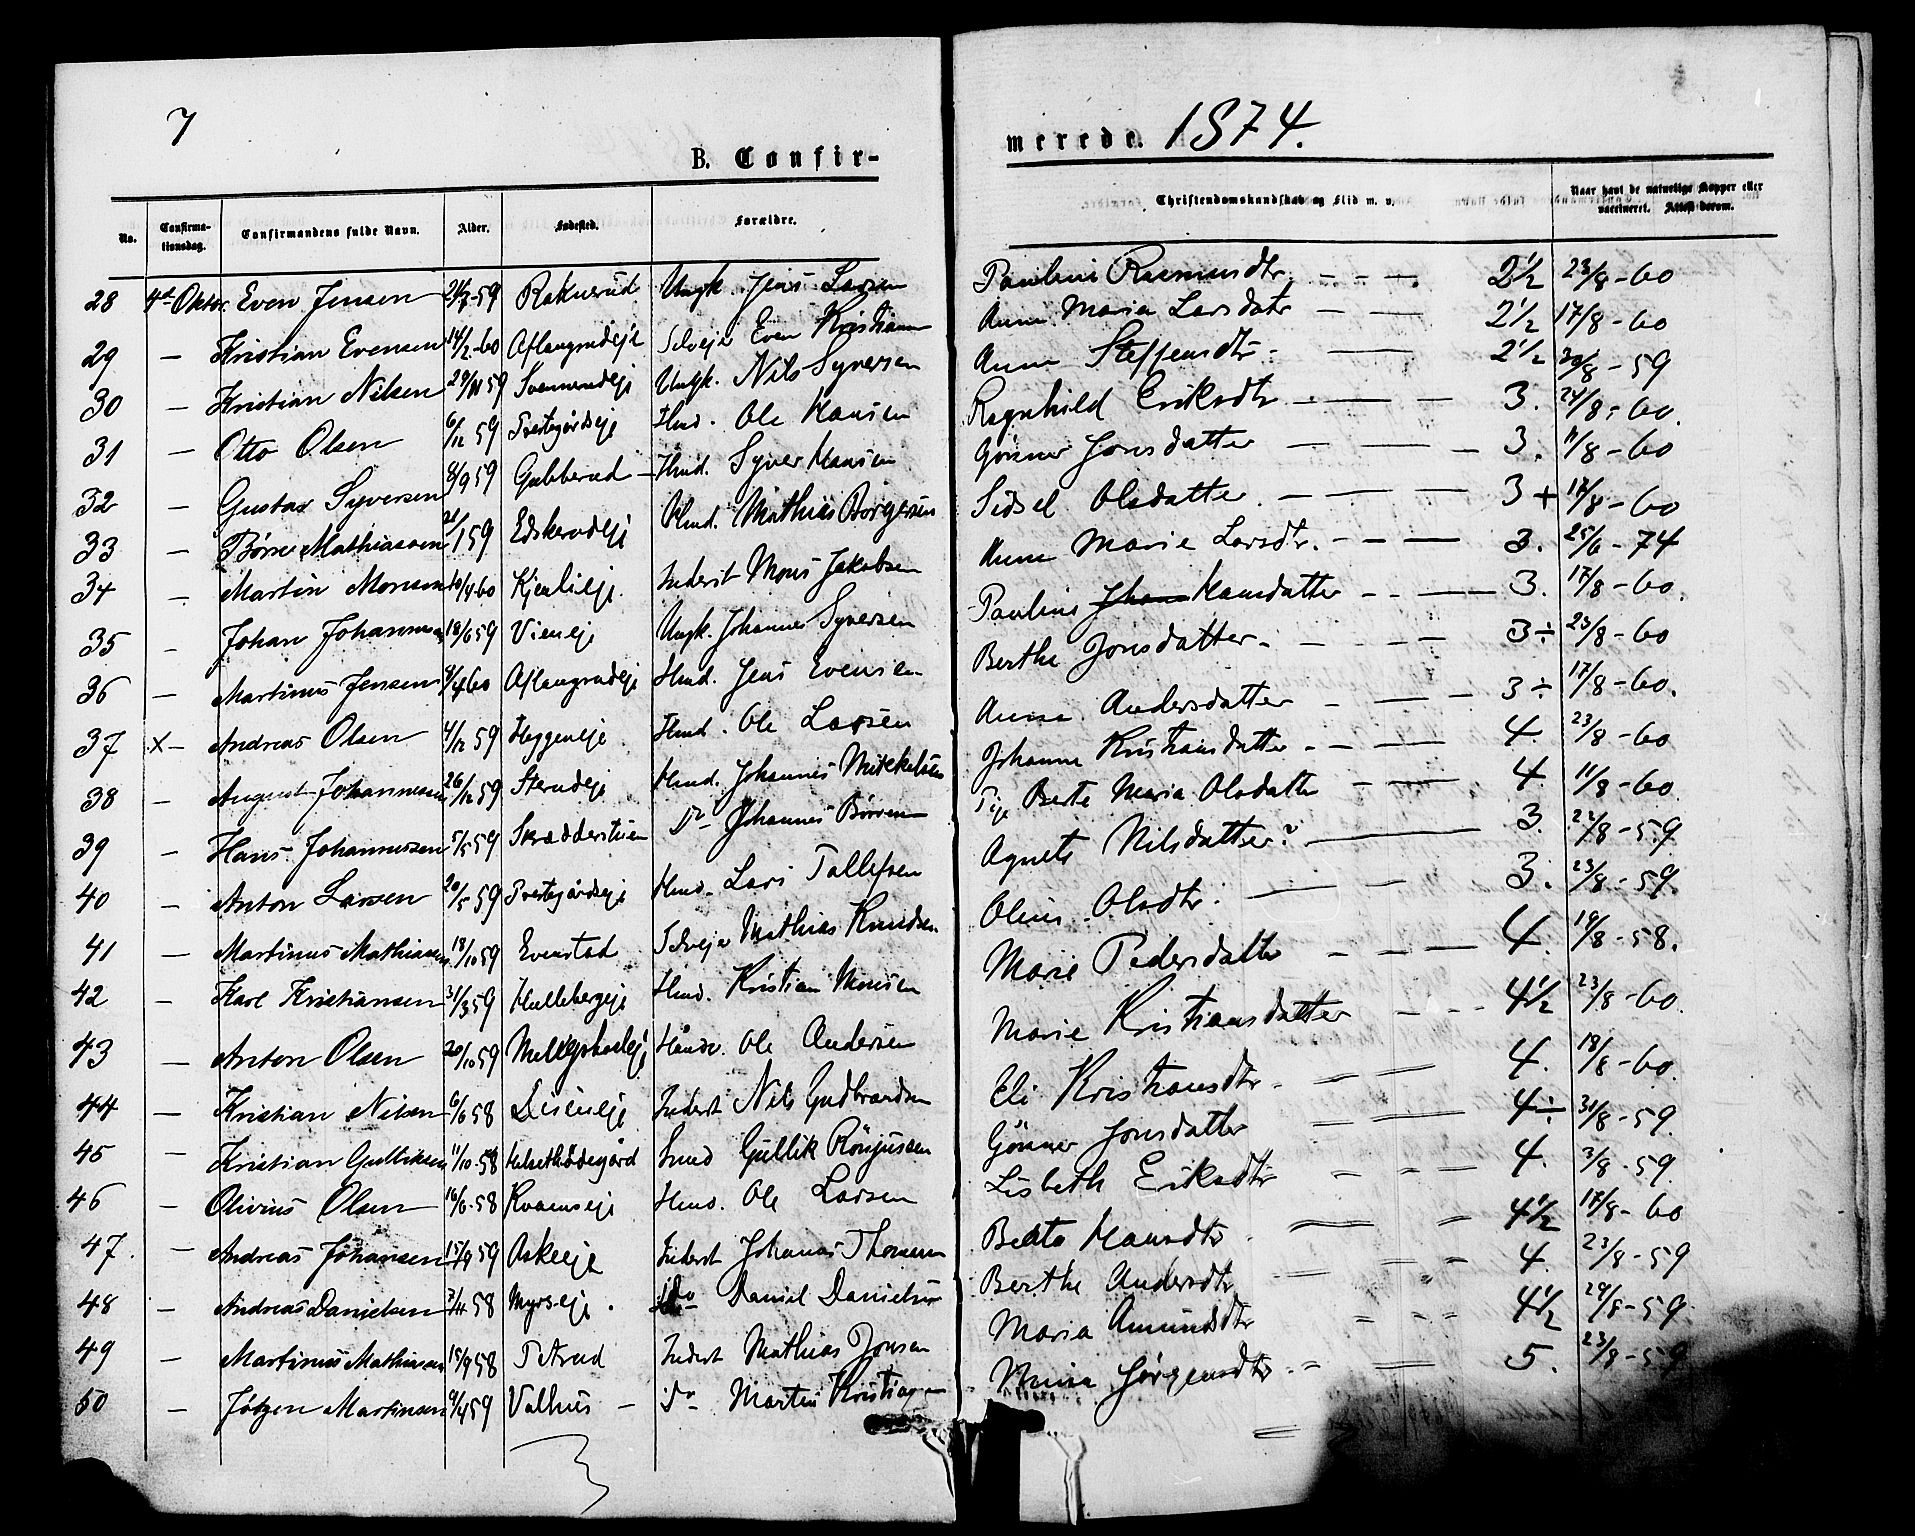 7
B. Confir-
merede. 1874.
No. Confirma-tionsdag. Confirmandens fulde Navn. Alder. Fødested. Forældre. Christendomskundskab og Flid m. v. Naar havt de naturlige Kopper eller vaccineret. Attest derom.
28 4de Oktbr. Even Jensen 59 Raknerud Ungk. Jens Larsen Pauline Rasmusdtr. 2½ 23/8-60
29 — Kristian Evensen 14/2-60 Aflangrudeje Selvejer Even Kristiansen Anne Maria Larsdatr 2½ 17/8-60
30 — Kristian Nilsen 59 Svenneudeje Ungk. Nils Syversen Anne Steffensdtr 2½ 30/8-59
31 — Otto Olsen 6/12 59 Tvertegårdseje Hmd. Ole Hansen Ragnhild Eriksdtr 3. 24/8-60
32 — Gustav Syversen 8/9 59 Gubberud — Hmd. Syver Hansen Gønner Jonsdatter 3. 11/8-60
33 — Børre Mathiassen 21/1 59 Edskerudeje Hmd. Mathias Borgersen Sidsel Olsdatter 3+ 17/8-60
34 — Martin Monsen 10/4-60 Kjenlieje Inderst Mons Jakobsen Anne Marie Larsdtr. 3. 25/6-74
35 — Johan Johannesen 18/6 59 Vieneje Ungk. Johannes Syversen Pauline Hansdatter 3. 17/8-60
36 — Martinus Jensen 9/4 60 Aflangrudeje Hmd. Jens Evensen Berthe Jonsdatter 3÷ 23/8-60
37 x— Andreas Olsen 4/12 59 Heggeneje Hmd. Ole Larsen Anne Andersdatter 3÷ 17/8-60.
38 — August Johannessen 26/12 59 Sterudeje Hmd. Johannes Mikkelsen Johanne Kristiansdatter 4. 23/8-60
39 — Hans Johannessen 5/5 59 Skrædderstuen Do Johannes Børresen Pige Berte Maria Olsdatter 4 11/8-60
40 — Anton Larsen 20/5 59 Tvertegårdseje Hmd. Lars Tollefsen Agnete Nilsdatter? 3. 22/8-59
41 — Martinus Mathiassen 18/10 59 Evenstad Selvejer Mathias Knudsen Oline Olsdtr. 3. 23/8-59
42 — Karl Kristiansen 31/3 59 Hullebergeje Hmd. Kristian Monsen Marie Pedersdatter 4. 19/8-58.
43 — Anton Olsen 20/10 59 Ole Andersen Marie Kristiansdatter 4½ 23/8-60
44 — Kristian Nilsen 6/6 58 Diseneje Inderst Nils Gudbrandsen Eli Kristiansdtr. 4. 18/8-60
45 — Kristian Gulliksen 11/10-58 Helsethødegård Gullik Gønner Jonsdatter 4÷ 31/8-59
46 — Olivius Olsen 16/6-58 Kvæmseje Hmd. Ole Larsen Lisbeth Eriksdtr 4. 3/8-59
47. — Andreas Johansen 15/9 59 Askeeje Inderst Johannes Thomesen Beata Hansdtr 4½ 17/8-60
48 — Andreas Danielsen 7/11 58 Myrseje. Do Daniel Danielsen Berthe Andersdtr 4. 23/8-59
49 — Martinus Mathiasen 15/9 58 Mathias Jonsen Maria Amundsdtr 4½ 29/8-59
50 — Jørgen Martinsen 9/4 59 Valhus — Do Martin Kristiansen Jørgensdtr 5. 23/8-59